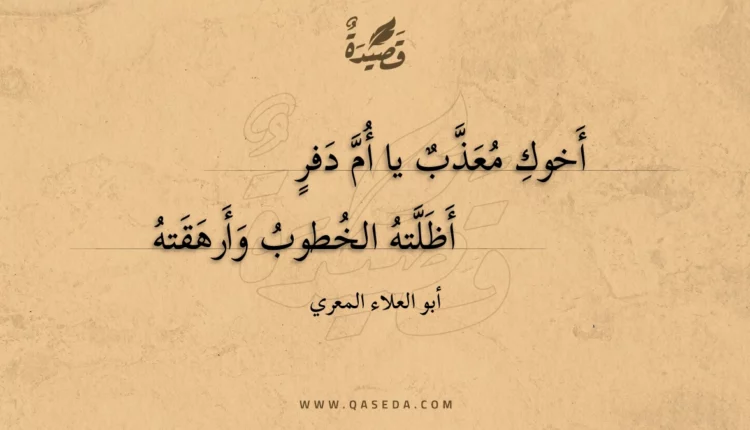 قَصِيدَةٌ
أَخوكِ مُعَذَّبٌ يا أُمَّ دَفرٍ
أَظَلَّتهُ الخُطوبُ وَأَرهَقَتهُ
أبو العلاء المعري
WWW.QASEDA.COM